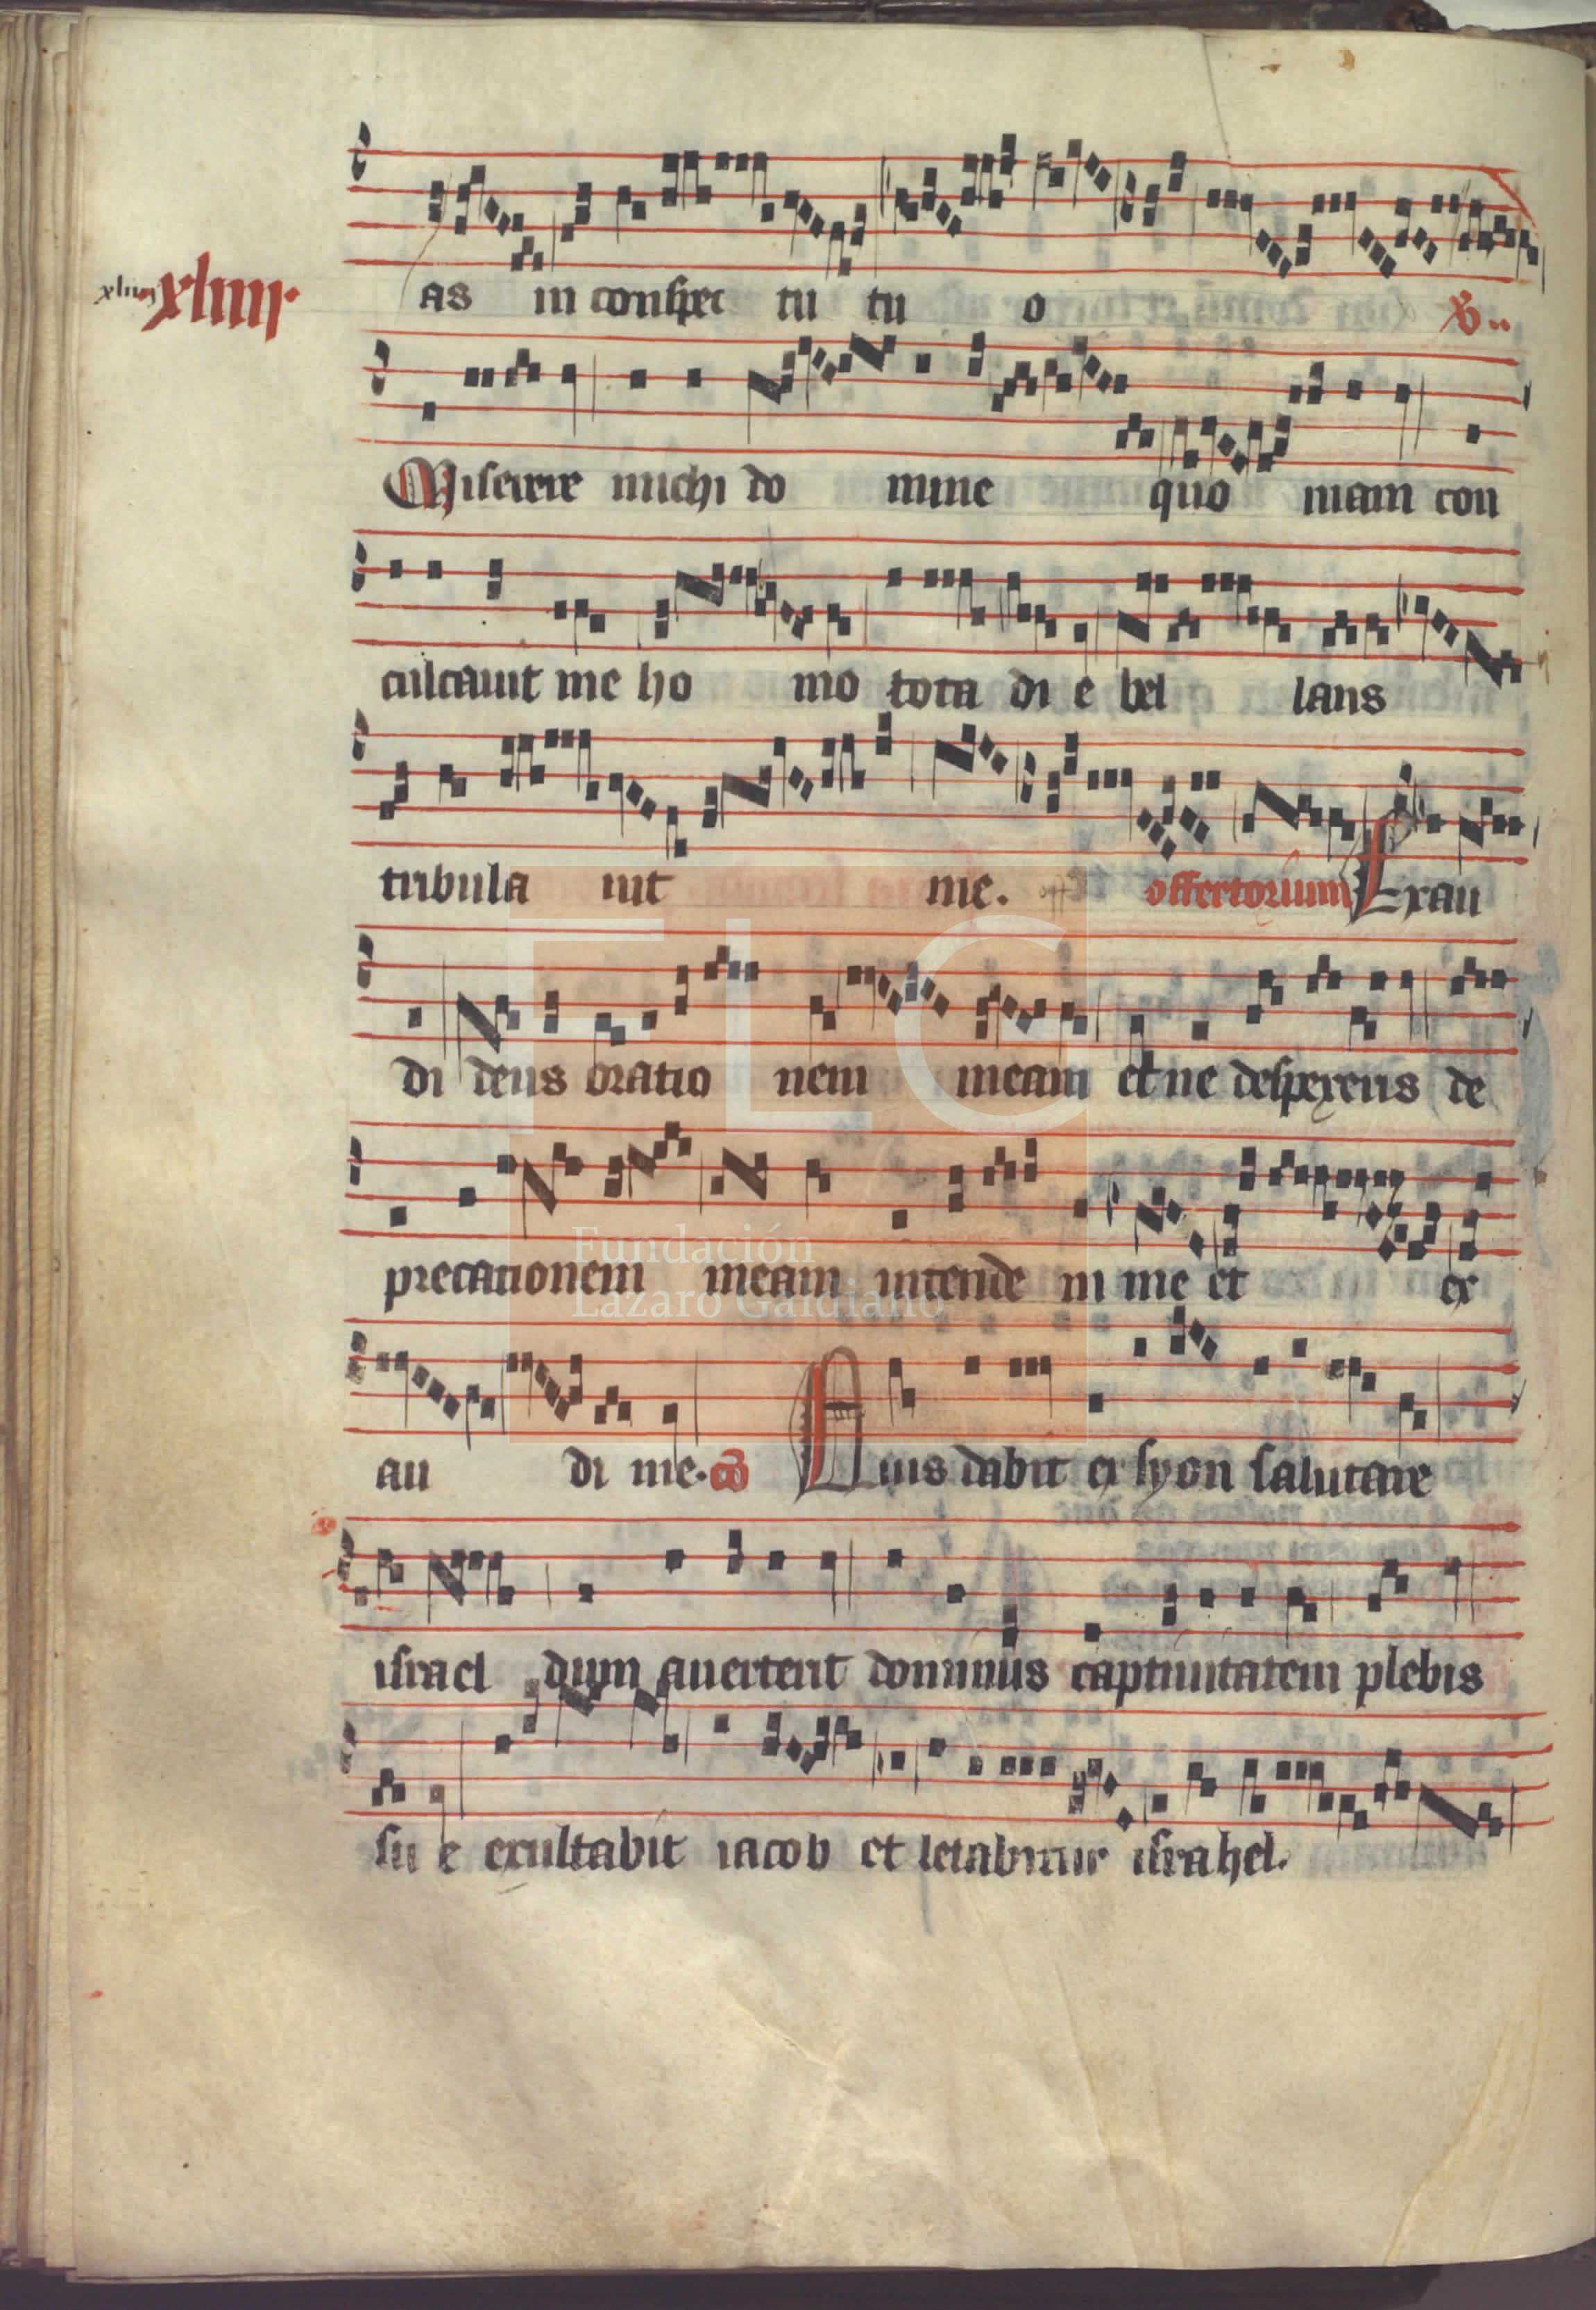 xliiij xliiii.
as in conspec tu tu o ℣..
Miserere michi do mine quo niam con
culcauit me ho mo tota di e bel lans
tribula uit me. offertorium Exau
di deus oratio nem meam et ne despexeris de
precationem meam intende in me et ex
au di me. co Quis dabit ex syon salutare
israel dum auerterit dominus captiuitatem plebis
su e exultabit iacob et letabitur israhel.
FLG
Fundación
Lázaro Galdiano